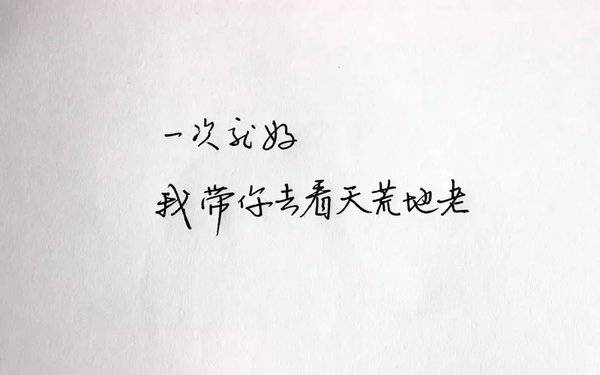 一次就好
我带你去看天荒地老